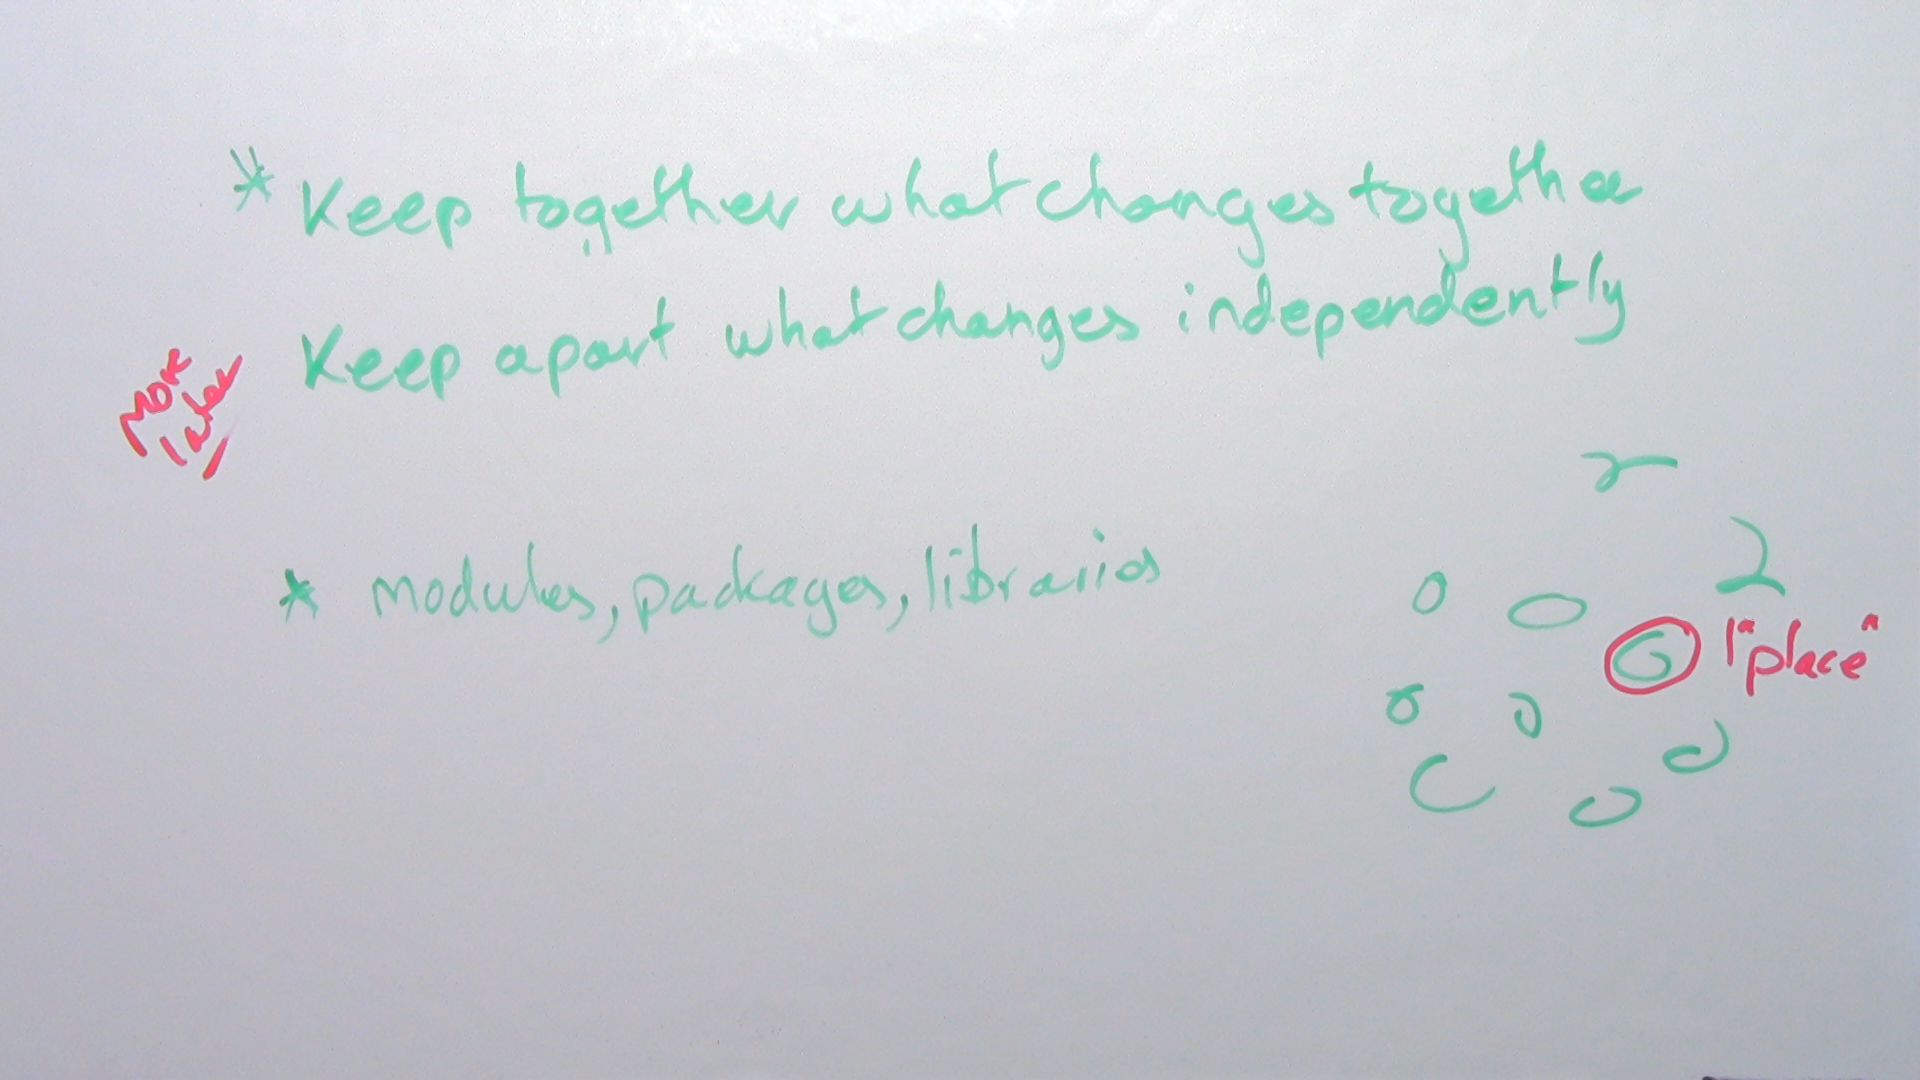 * Keep together what changes together
Keep apart what changes independently
more
later
* modules, packages, libraries
1 "place"